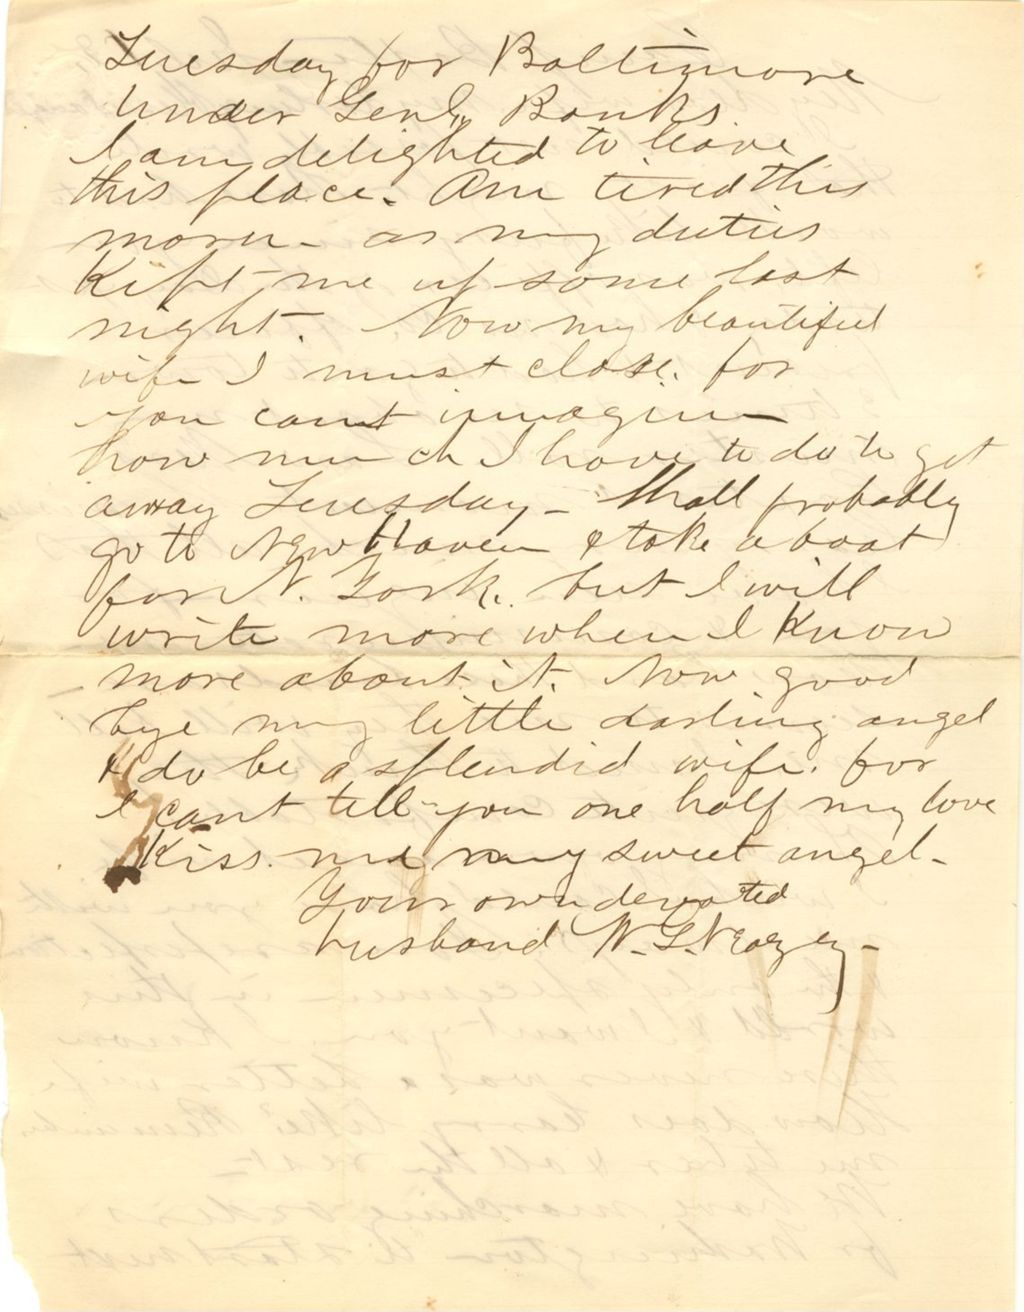 Tuesday for Baltimore
under Genl. Banks
I am delighted to leave
this place. Am tired this
morn - as my duties
Kept me up some last
night. Now my beautiful
wife I must close. for
you cant immagine
how much I have to do to get
away Tuesday - Shall probably
go to New Haven & take a boat
for N. York. but I will
write more when I Know
more about it. Now good
bye my little darling angel
& do be a splendid wife. for
I cant tell you one half my love
Kiss me my sweet angel -
Your own devoted
husband W. G. Veazey -